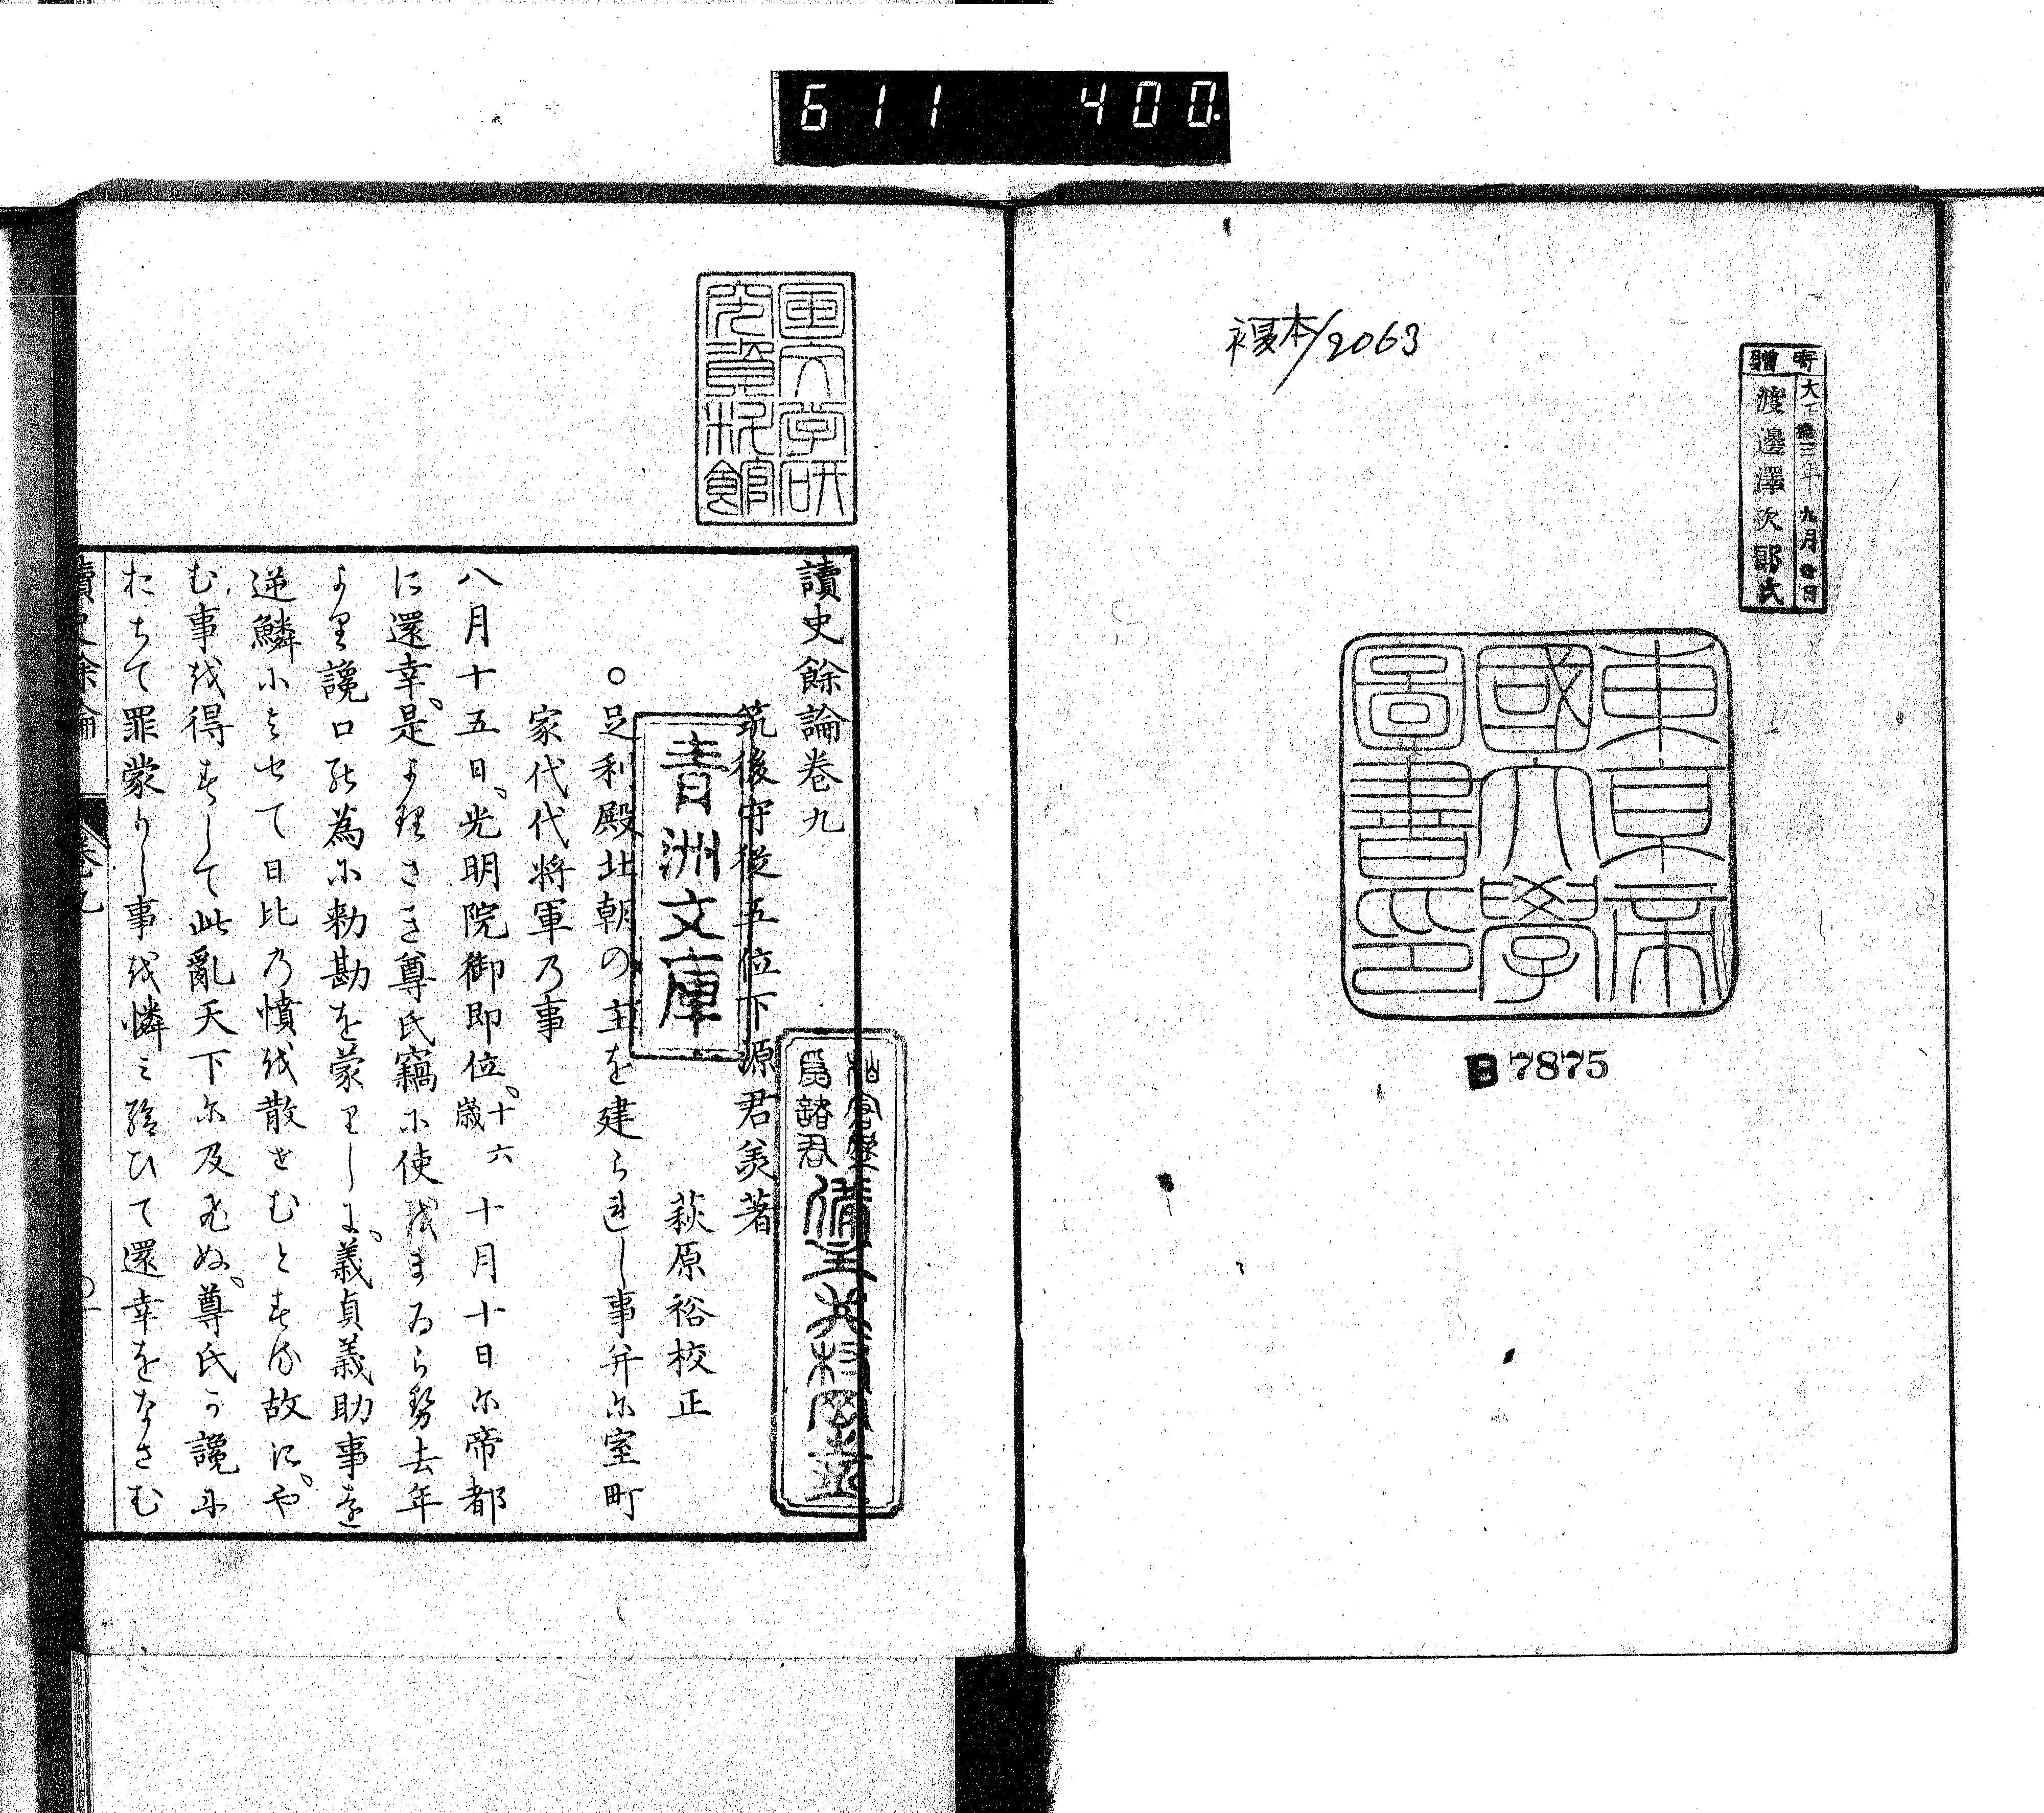 611 400.
複本/2063
寄贈
大正拾三年九月 日
渡邊澤次郎氏
東京帝
國大學
圖書印
B 7875
国文学研
究資料館
讀史餘論卷九
筑後守從五位下源君美著
萩原裕校正
青洲文庫
○足利殿北朝の主を建られし事并尓室町
家代代将軍乃事
八月十五日、光明院御即位。十六歳 十月十日尓帝都
に還幸。是より理さき尊氏竊尓使越まゐら勢去年
より讒口能為尓勅勘を蒙りしよ。義貞義助事を
逆鱗尓よせて日比乃憤越散せむとす流故に。や
む事越得すして此亂天下尓及ひぬ。尊氏可讒尓
おちて罪蒙りし事越憐ミ給ひて還幸をなさむ
讀史餘論
卷九